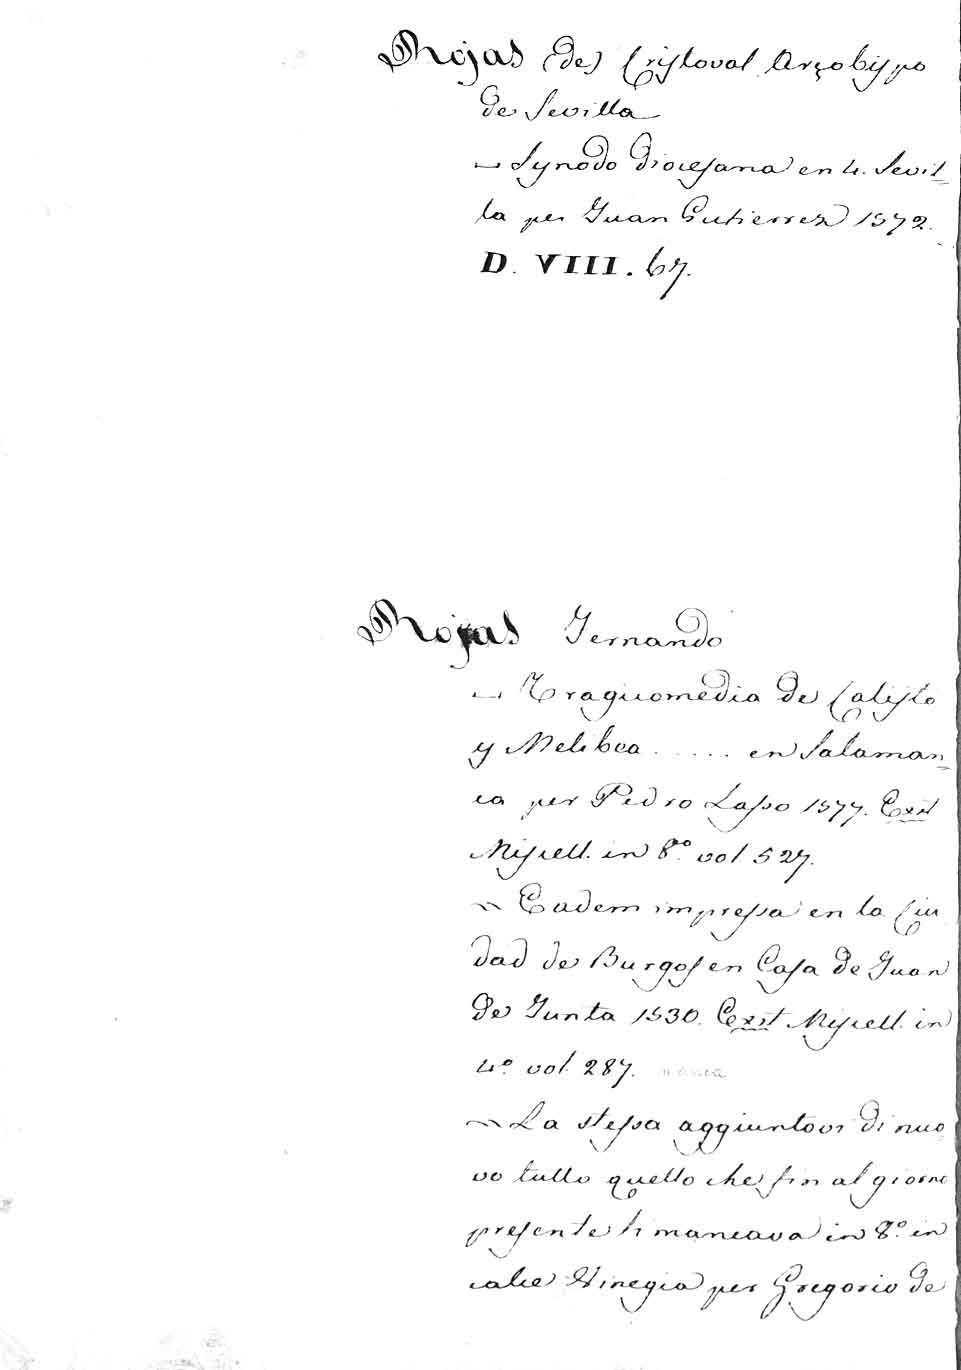 Rojas (de) Cristoval Arçobispo
de Sevilla
— Synodo diocesana en 4. Sevil=
la per Juan Gutierrez 1572.
D. VIII. 67.
Rojas Fernando
— Tragicomedia de Calisto
y Melibea ..... en Salaman=
ca per Pedro Lasso 1577. Exst
Miscell. in 8.º vol 527.
— Eadem impressa en la Ciu
dad de Burgos en Casa de Juan
de Junta 1530. Exst Miscell. in
4.º vol. 287. manca
— La stessa aggiuntovi di nuo
vo tutto quello che fin al giorno
presente li mancava in 8.º in
calce Vinegia per Gregorio de